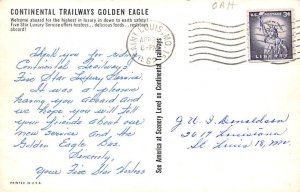 CONTINENTAL TRAILWAYS GOLDEN EAGLE
Welcome aboard for the highest in luxury in down to earth safety!
Five Star Luxury Service offers hostess... delicious foods... restroom
aboard!
Thank you for riding
Continental Trailways
Five Star Luxury Service.
It was a pleasure
having you aboard and
we hope you will tell
your friends about our
new service and the
Golden Eagle Bus.
Sincerely,
Your Five Star Hostess
PRINTED IN U.S.A.
See America at Scenery Level via Continental Trailways
SAINT LOUIS, MO.
3¢
LIBERTY
J. W. Donaldson
3617 Louisiana
St Louis 18, Mo.